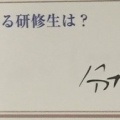 る研修生は？